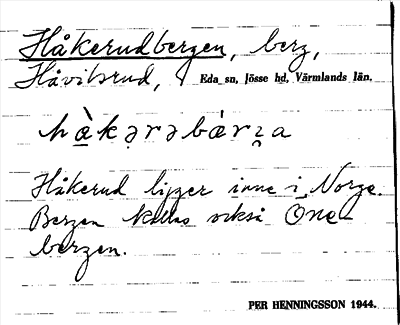 Håkerudbergen, berg,
Håvilsrud, Eda sn, Jösse hd, Värmlands län.
hàkərəbárža
Håkerud ligger inne i Norge.
Bergen kallas också One-
bergen.
PER HENNINGSSON 1944.